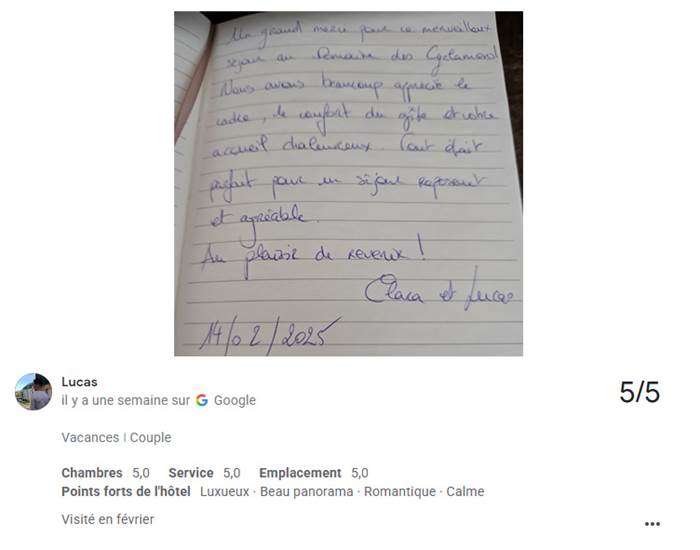 Un grand merci pour ce merveilleux
séjour au Domaine des Cyclamens!
Nous avons beaucoup apprécié le
cadre, le confort du gîte et votre
accueil chaleureux. Tout était
parfait pour un séjour reposant
et agréable.
Au plaisir de revenir!
Clara et Lucas
14/02/2025
Lucas
il y a une semaine sur Google
5/5
Vacances | Couple
Chambres 5,0 Service 5,0 Emplacement 5,0
Points forts de l'hôtel Luxueux · Beau panorama · Romantique · Calme
Visité en février